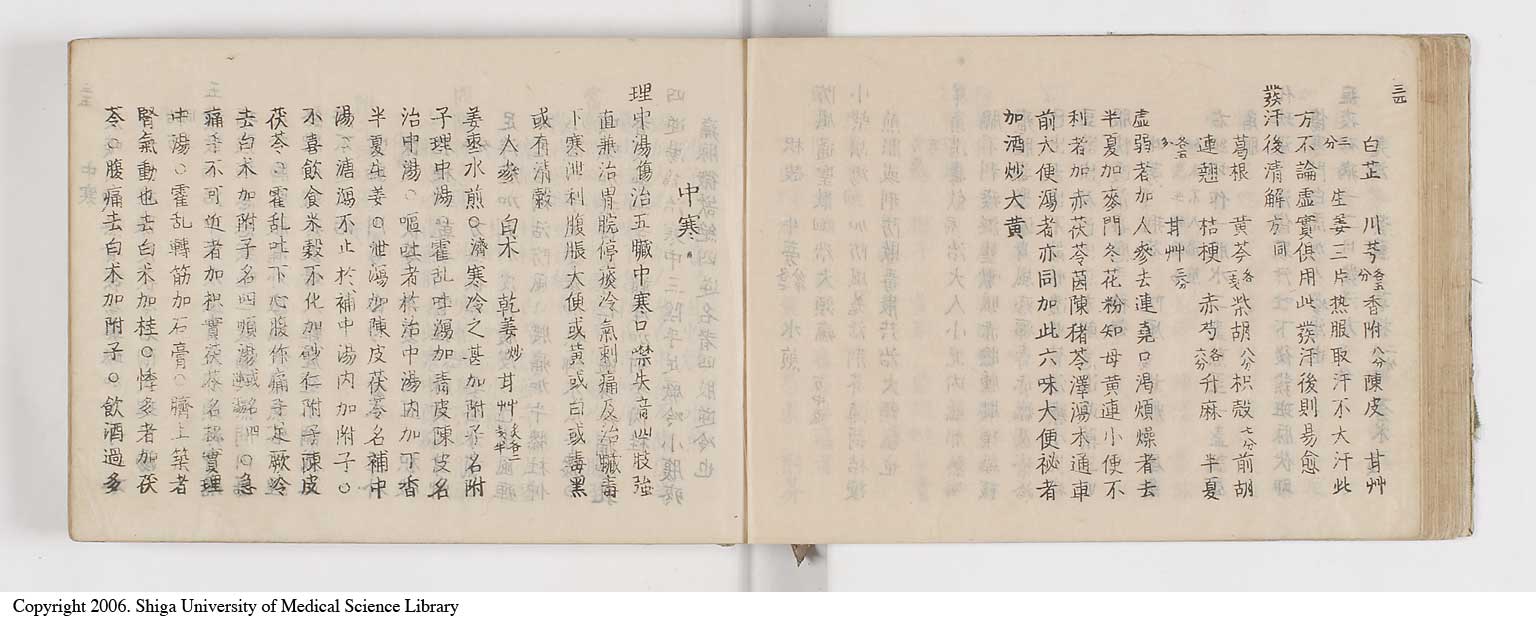 三四
白芷 川芎各五分 香附八分 陳皮 甘艸
三分 生姜三片热服取汗不大汗此
方不論虚實俱用此發汗後則易愈
發汗後清解方同
葛根 黄芩各五分 柴胡八分 枳殻七分 前胡
連翹 桔梗 赤芍各六分 升麻 半夏
各五分 甘艸三分
虚弱者加人參去連堯口渴煩燥者去
半夏加麥門冬花粉知母黄連小便不
利者加赤茯苓茵陳猪苓澤瀉木通車
前大便瀉者亦同加此六味大便祕者
加酒炒大黄
中寒
理中湯傷治五臓中寒口噤失音四肢強
直兼治胃脘停痰冷氣刺痛及治臓毒
下寒泄利腹脹大便或黄或白或毒黒
或有清穀
人參 白术 乾姜炒 甘艸
姜棗水煎○濟寒冷之甚加附子名附
子理中湯○霍乱吐瀉加青皮陳皮名
治中湯○嘔吐者於治中湯内加丁香
半夏生姜○泄瀉加陳皮茯苓名補中
湯○溏瀉不止於補中湯内加附子○
不喜飲食米穀不化加砂仁附子陳皮
茯苓○霍乱吐下心腹作痛手足厥冷
去白术加附子名四順湯○急
痛手不可近者加枳實茯苓名枳實理
中湯○霍乱轉筋加石膏○臍上築者
腎氣動也去白术加桂○悸多者加茯
苓○腹痛去白术加附子○飲酒過多
Copyright 2006. Shiga University of Medical Science Library